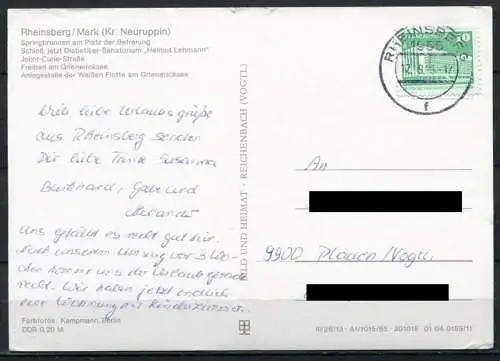 Rheinsberg/Mark (Kr. Neuruppin)
Springbrunnen am Platz der Befreiung
Schloß, jetzt Diabetiker-Sanatorium „Helmut Lehmann"
Joliot-Curie-Straße
Freibad am Grienericksee
Anlegestelle der Weißen Flotte am Grienericksee
Viele liebe Urlaubsgrüße
aus Rheinsberg senden
Dir liebe Tante Susanna
Burkhard, Gabi und
Uns gefällt es recht gut hier.
Nach unserem Umzug vor 3 Wo-
chen kommt uns der Urlaub gerade
recht. Wir haben jetzt endlich
eine Wohnung mit Kinderzimmer.
Farbfotos: Kampmann, Berlin
DDR 0,20 M
BILD UND HEIMAT · REICHENBACH (VOGTL)
RHEINSBERG
f
An
9900 Plauen/Vogtl.
III/26/13 · A1/1015/85 · 301015 01 04 0159/11